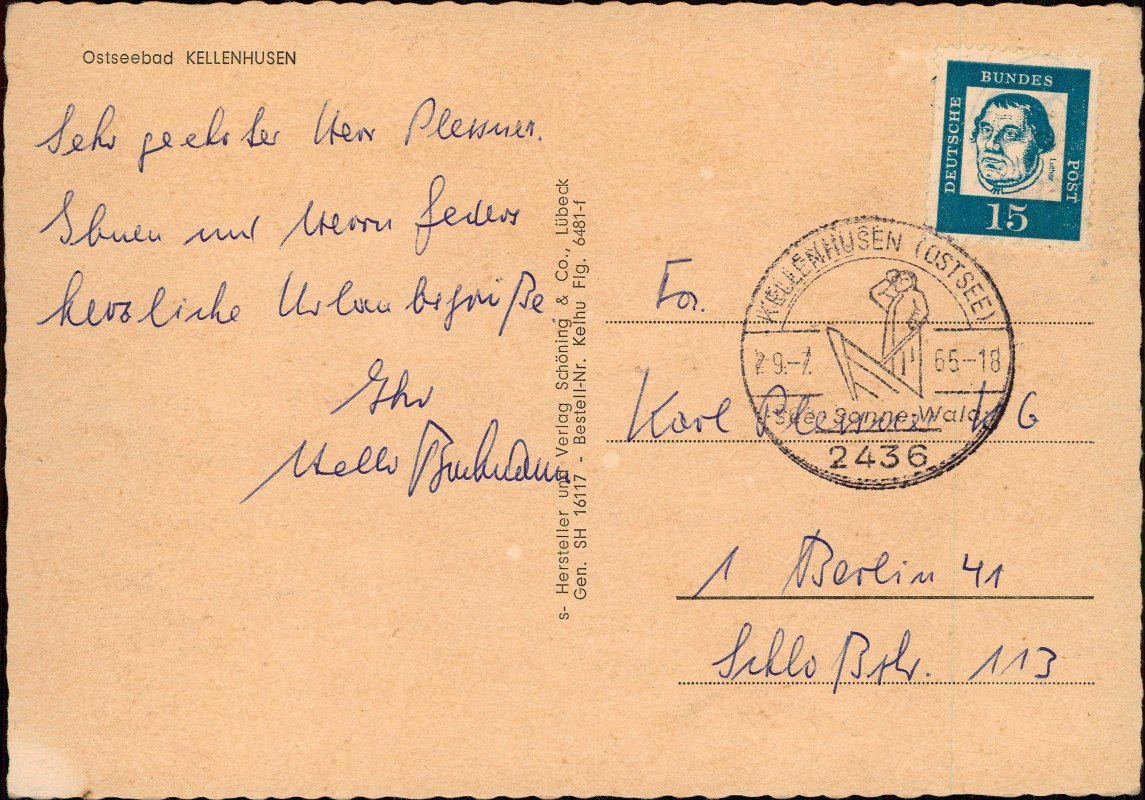 Ostseebad KELLENHUSEN
Sehr geehrter Herr Plessner.
Ihnen und Herrn
herzliche Urlaubsgrüße
Ihr
s- Hersteller und Verlag Schöning & Co., Lübeck
Gen. SH 16117 - Bestell-Nr. Kelhu Flg. 6481-f
DEUTSCHE
BUNDES
POST
Luther
15
KELLENHUSEN (OSTSEE)
29.-7. 65.-18
See-Sonne-Wald
2436
Fa.
Karl Plessner KG
1 Berlin 41
Schloßstr. 113